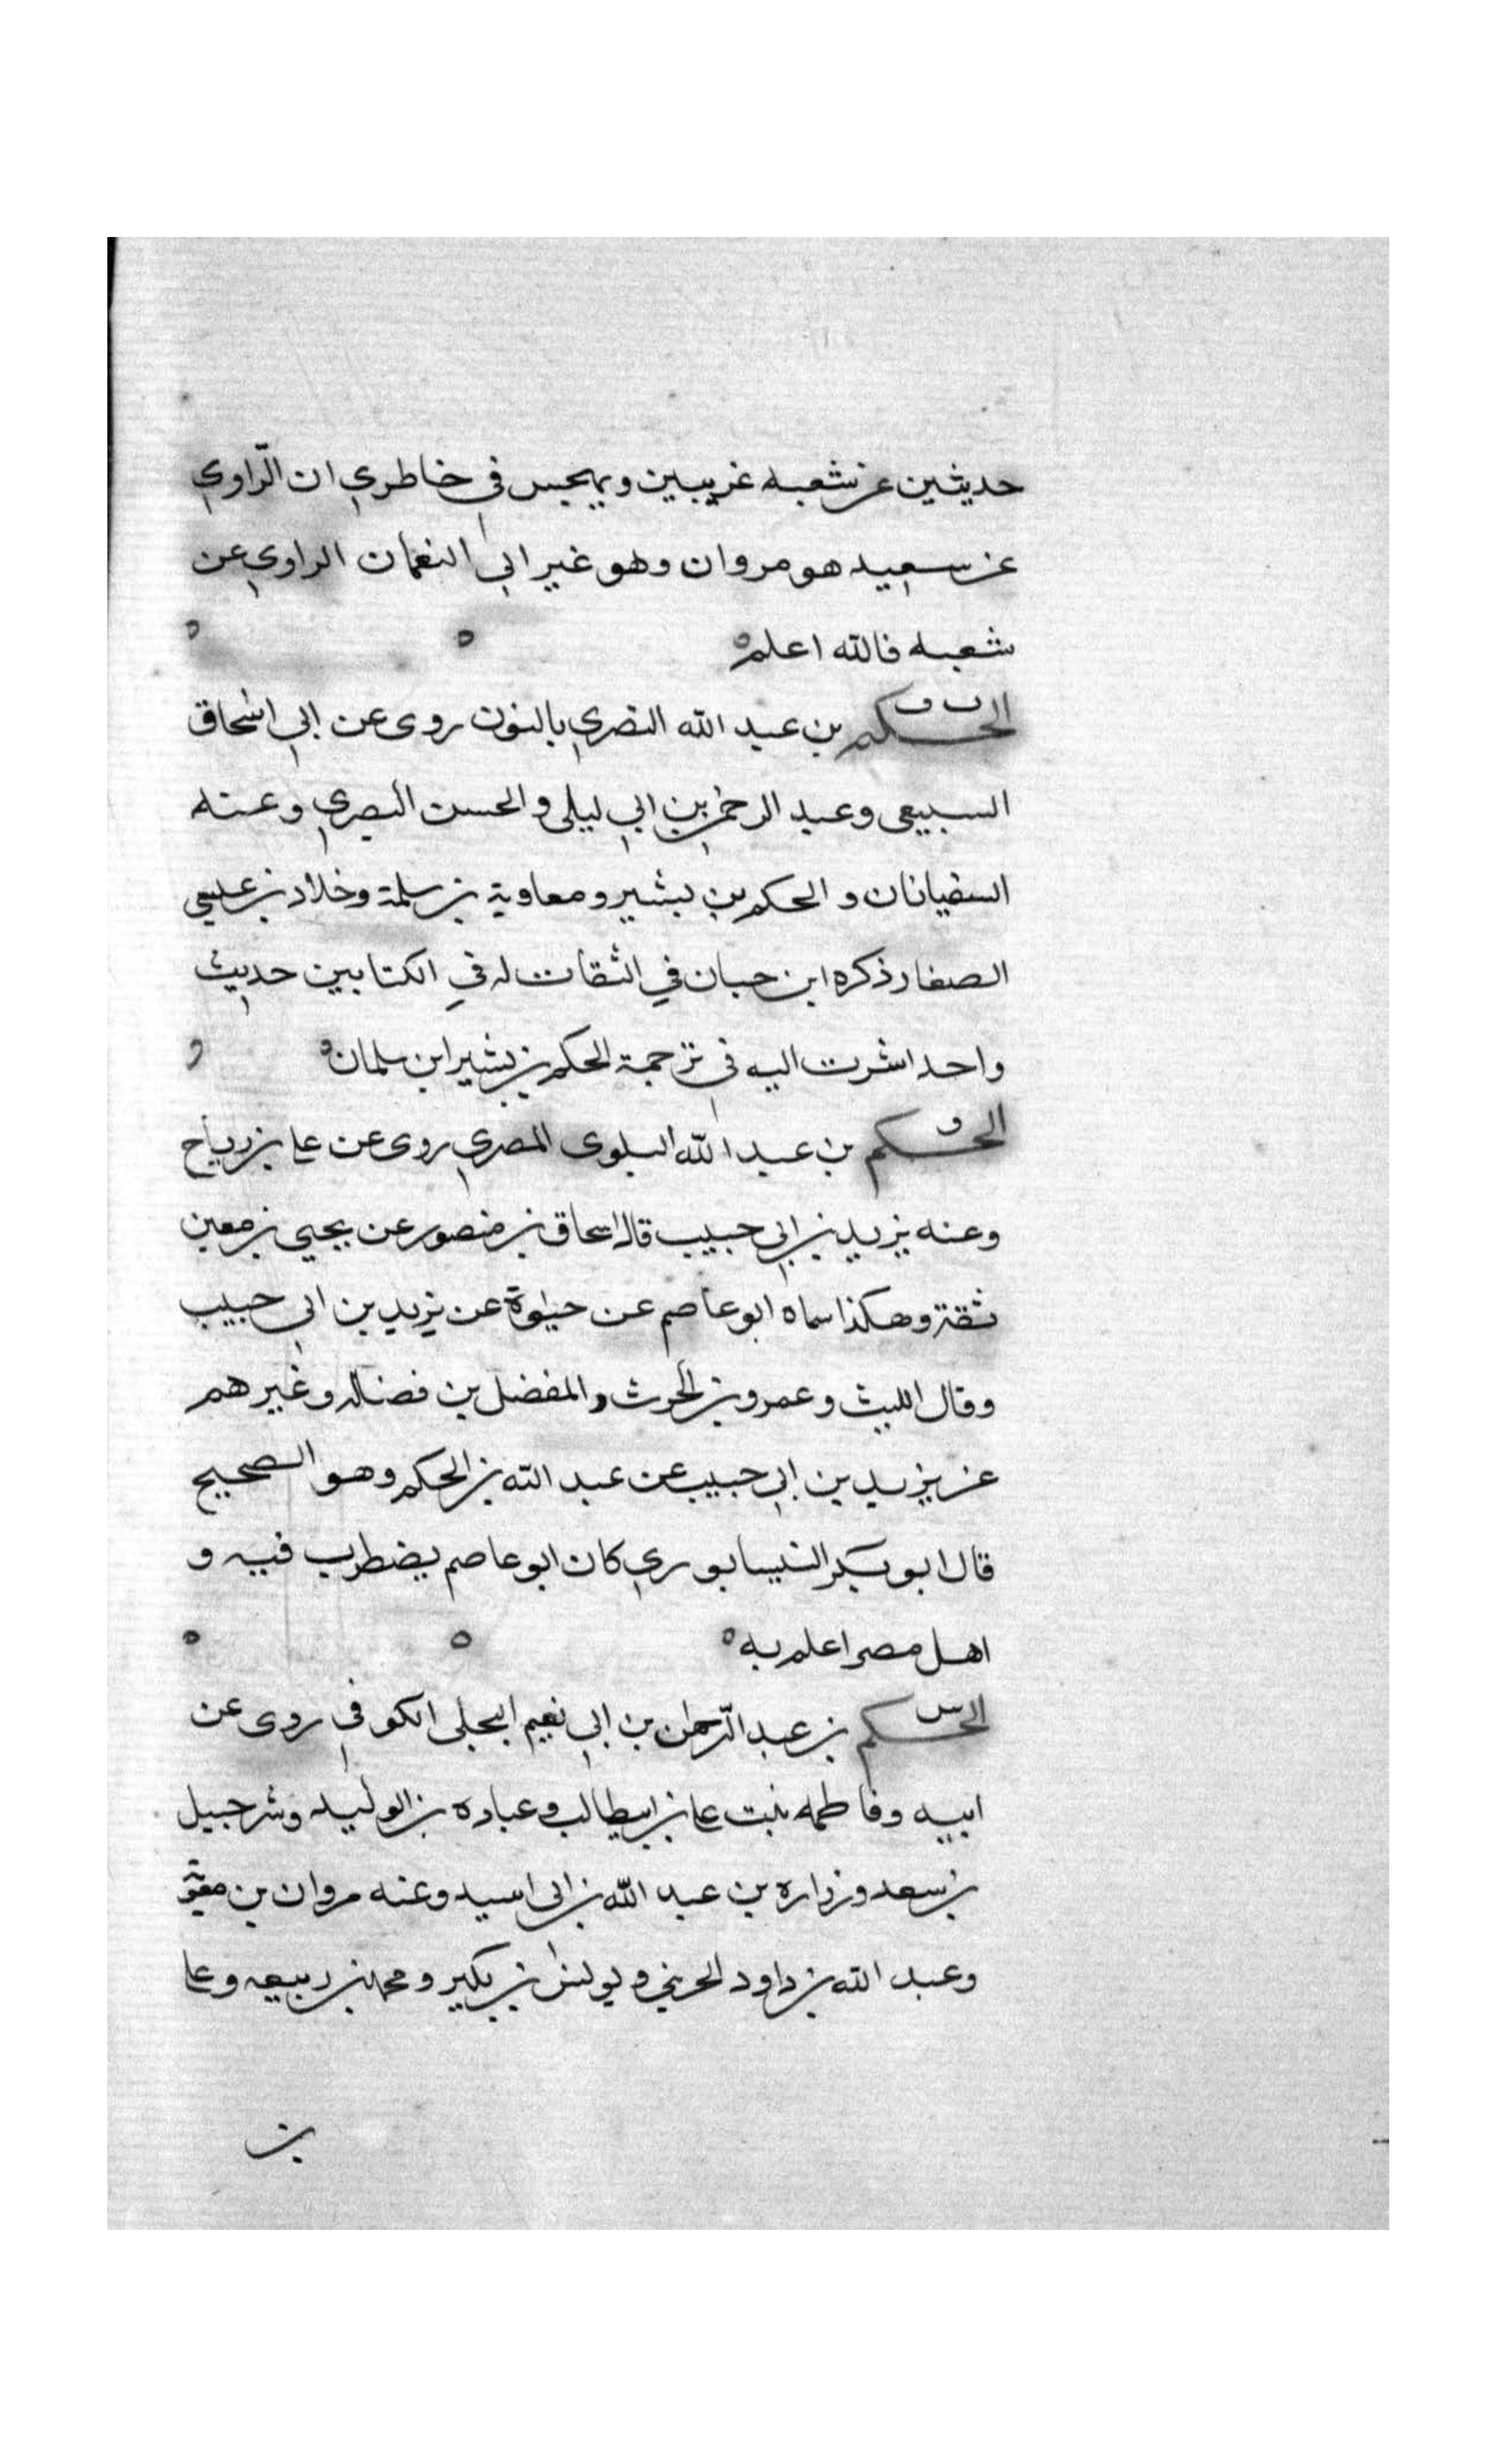 حديثين عن شعبه غريبين ويهجس في خاطري ان الرّاوي
عن سعيد هو مروان وهو غير ابي النعمان الراوي عن
شعبه فالله اعلم
الحكم بن عبد الله النصري بالنون روى عن ابي اسحاق
السبيعي وعبد الرحمن بن ابي ليلى والحسن البصري وعنه
السفيانان والحكم بن بشير ومعاوية بن سلمة وخلاد بن عيسى
الصفار ذكره ابن حبان في الثقات له في الكتابين حديث
واحد اشرت اليه في ترجمة الحكم بن بشير ابن سلمان
الحكم بن عبد الله البلوى المصري روى عن علي بن رباح
وعنه يزيد بن ابي حبيب قال اسحاق بن منصور عن يحيى بن معين
ثقة وهكذا سماه ابو عاصم عن حيوة عن يزيد بن ابي حبيب
وقال الليث وعمرو بن الحرث والمفضل بن فضاله وغيرهم
عن يزيد بن ابي حبيب عن عبد الله بن الحكم وهو الصحيح
قال ابو بكر النيسابوري كان ابو عاصم يضطرب فيه و
اهل مصر اعلم به
الحكم بن عبد الرّحمان بن ابي نعيم البجلي الكوفي روى عن
ابيه وفاطمه بنت علي بن ابيطالب وعباده بن الوليد وشرحبيل
بن سعد وزراره بن عبد الله بن ابي اسيد وعنه مروان بن معوية
وعبد الله بن داود الحريني ويونس بن بكير ومحمد بن ربيعه وعلي
بن